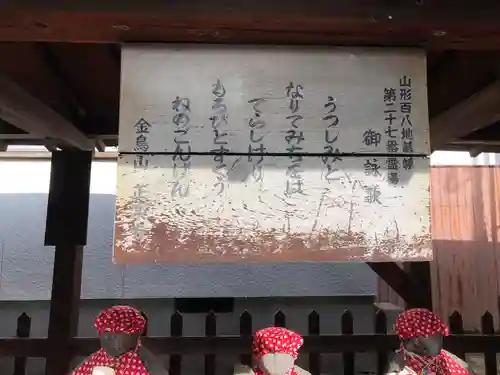 山形百八地蔵尊
第二十七番霊場
御詠歌
うつしみと
なりてみちをは
てらしけり
もろびとすくう
ねのごんげん
金鳥山 正